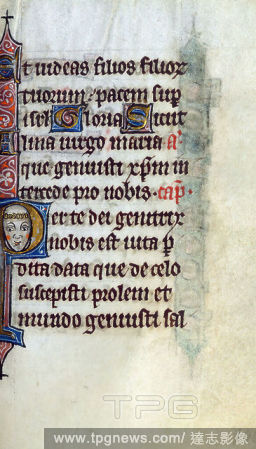 Et videas filios filiorz
tuorum · pacem sup
isrl Gloria Sicut
lma virgo maria a
que genuisti xpm in
tercede pro nobis · cap
Per te dei genitrix
nobis est vita p
dita data que de celo
suscepisti prolem et
mundo genuisti sal
TPG
www.tpgnews.com/達志影像